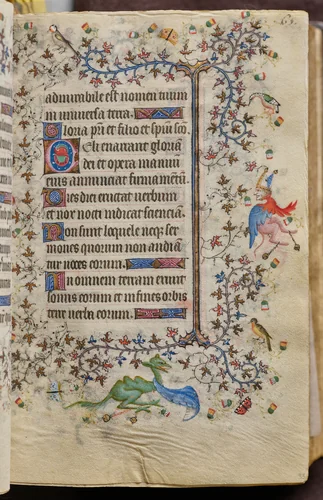 admirabile est nomen tuum
in universa terra.
Gloria pri et filio et spiui sco.
Celi enarrant gloriā
dei et opera manuū
eius annunciat firmamētū.
Dies diei eructat verbum
et nox nocti indicat scienciā.
Non sunt loquele neqz ser
mones quorum non audiā
tur voces eorum.
In omnem terram exiuit
sonus eorum et in fines orbis
terre verba eorum.